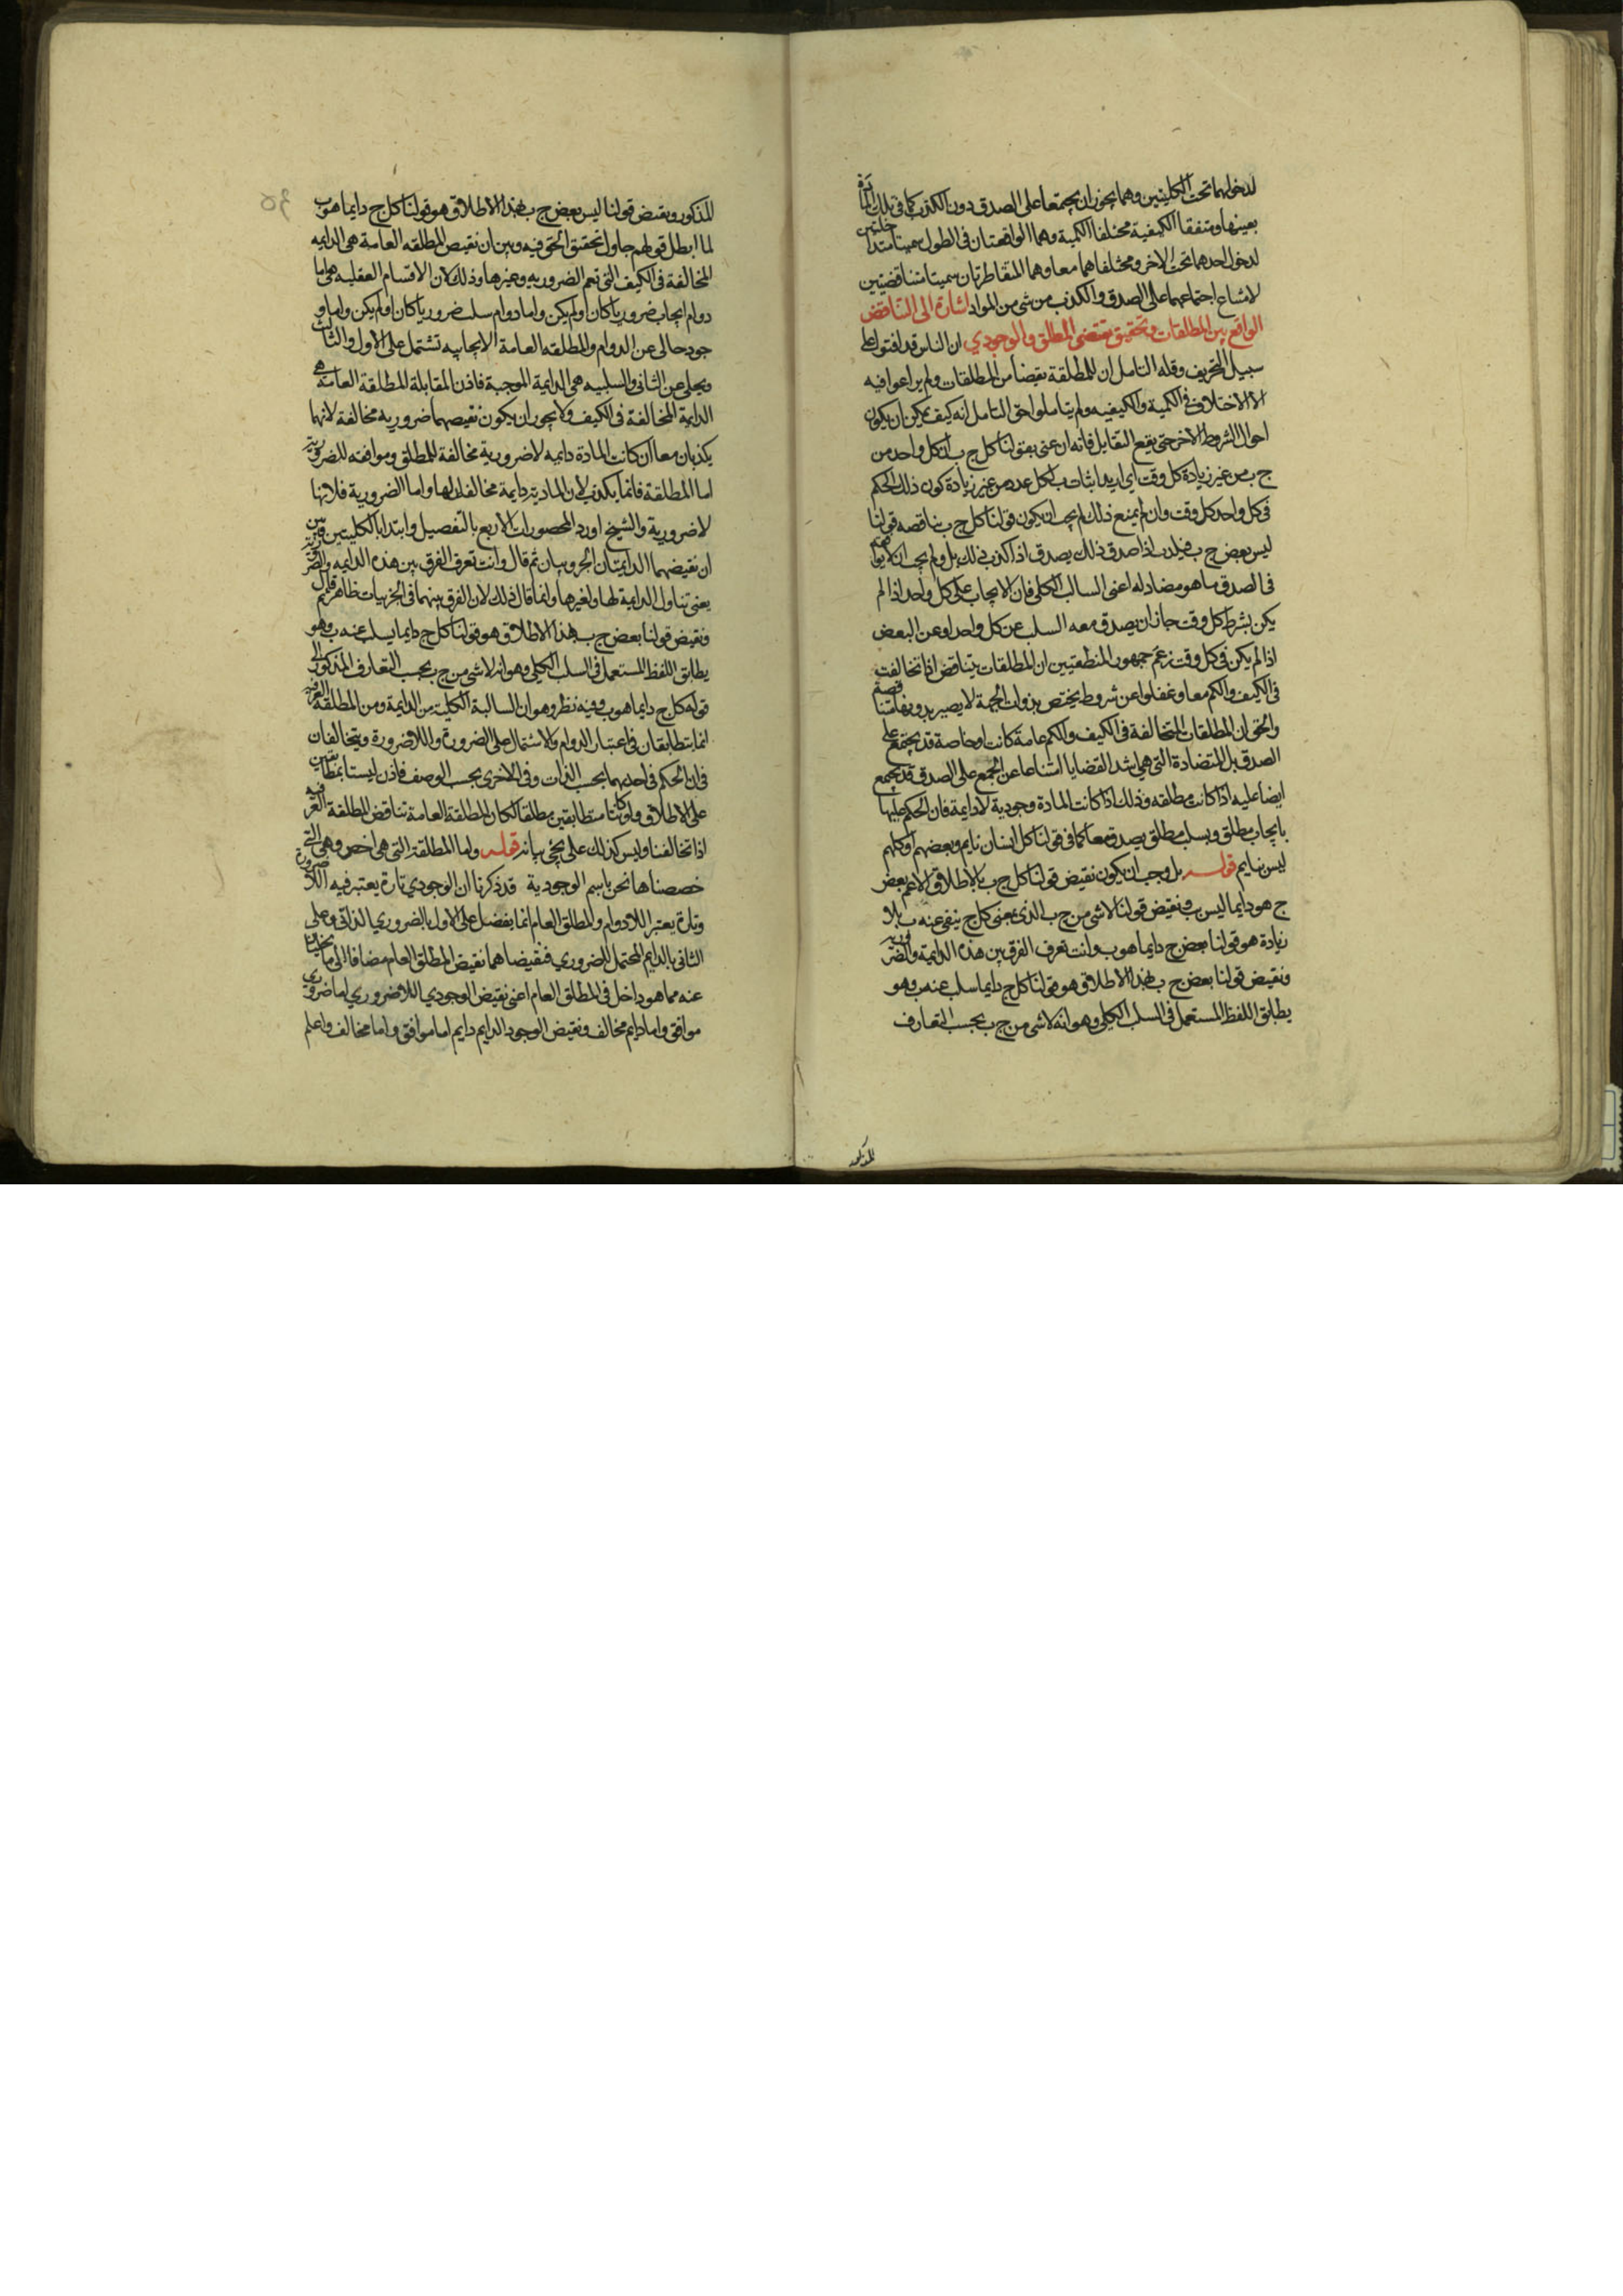 لدخولهما تحت الكليتين وهما يجوز ان يجتمعا على الصدق دون الكذب كما في تلك المادة
بعينها ومتفقا الكيفية مختلفا الكمية وهما الواقعتان في الطول سميتا متداخلتين
لدخول احدهما تحت الاخر ومختلفاهما معا وهما المتقاطرتان سميتا متناقضتين
لامتناع اجتماعهما على الصدق والكذب من شي من المواد اشارة الى التناقض
الواقع بين المطلقات وتحقيق نقيض المطلق والوجودي ان الناس قد افتوا على
سبيل التحريف وقله التامل ان للمطلقة نقيضا من المطلقات ولم يراعوا فيه
الا الاختلاف في الكمية والكيفيه ولم يتاملوا حق التامل انه كيف يمكن ان يكون
احوال الشروط الاخر حتى يقع التقابل فانه ان عنى بقولنا كل ج ب ان كل واحد من
ج ب من غير زيادة كل وقت اي اريد اثبات ب لكل عدد من غير زيادة كون ذلك الحكم
في كل واحد كل وقت وان لم يمنع ذلك لم يجب ان يكون قولنا كل ج ب يناقضه قولنا
ليس بعض ج ب فيكذب اذا صدق ذلك يصدق اذا كذب ذلك بل ولم يجب ان لا يوافقه
في الصدق ما هو مضاد له اعنى السالب الكلي فان الايجاب على كل واحد اذا لم
يكن بشرط كل وقت جاز ان يصدق معه السلب عن كل واحد او عن البعض
اذا لم يكن في كل وقت زعم جمهور المنطقيين ان المطلقات يتناقض اذا تخالفت
في الكيف والكم معا وغفلوا عن شروط يختص بذوات الجهة لا يصير بدونها متناقضة
والحق ان المطلقات المتخالفة في الكيف والكم عامة كانت او خاصة قد يجتمع على
الصدق بل المتضادة التي هي اشد القضايا امتناعا عن الجمع على الصدق قد يجمع
ايضا عليه اذا كانت مطلقه وذلك اذا كانت المادة وجودية لا دايمة فان الحكم عليها
بايجاب مطلق وبسلب مطلق يصدق معا كما في قولنا كل انسان نايم وبعضهم او كلهم
ليس بنايم قوله بل وجب ان يكون نقيض قولنا كل ج ب بالاطلاق الاعم بعض
ج هو دايما ليس ب ونقيض قولنا لا شي من ج ب الذي بمعنى كل ج ينفى عنه ب بلا
زيادة هو قولنا بعض ج دايما هو ب وانت تعرف الفرق بين هذه الدايمة والضرورية
ونقيض قولنا بعض ج ب بهذا الاطلاق هو قولنا كل ج دايما سلب عنه ب وهو
يطابق اللفظ المستعمل في السلب الكلي وهو انه لا شي من ج ب بحسب التعارف
المذكور
المذكور ونقيض قولنا ليس بعض ج ب بهذا الاطلاق هو قولنا كل ج دايما هو ب
لما ابطل قولهم حاول تحقيق الحق فيه وبين ان نقيض المطلقه العامة هى الدايمه
المخالفة في الكيف التى تعم الضروريه وغيرها وذلك لان الاقسام العقليه هى اما
دوام ايجاب ضروريا كان او لم يكن واما دوام سلب ضروريا كان او لم يكن واما و
جود خالى عن الدوام والمطلقه العامة الايجابيه تشتمل على الاول والثالث
ويخلى عن الثاني والسلبيه هى الدايمة الموجبة فاذن المقابلة للمطلقة العامة هى
الدايمة المخالفة في الكيف ولا يجوز ان يكون نقيضهما ضروريه مخالفة لانهما
يكذبان معا ان كانت المادة دايمه لا ضرورية مخالفة للمطلق وموافقه للضرورية
اما المطلقة فانما يكذب لان المادية دايمة مخالفة لها واما الضرورية فلانها
لا ضرورية والشيخ اورد المحصورات الاربع بالتفصيل وابتدا بالكليتين وبين
ان نقيضهما الدايمتان الجزويتان ثم قال وانت تعرف الفرق بين هذه الدايمه والضرورية
يعنى تناول الدايمة لها ولغيرها وانما قال ذلك لان الفرق بينهما في الجزئيات ظاهر ثم قال
ونقيض قولنا بعض ج ب بهذا الاطلاق هو قولنا كل ج دايما يسلب عنه ب وهو
يطابق اللفظ المستعمل في السلب الكلي وهو انه لا شي من ج ب بحسب التعارف المذكور الى
قوله كل ج دايما هو ب وفيه نظر وهو ان السالبة الكلية من الدايمة ومن المطلقة العرفيه
انما يتطابقان في اعتبار الدوام والاشتمال على الضرورة واللاضرورة ويتخالفان
في ان الحكم في احديهما بحسب الذات وفى الاخرى بحسب الوصف فاذن ليستا بمطابقتين
على الاطلاق ولو كانتا متطابقتين مطلقا لكان المطلقة العامة تناقض المطلقة العرفيه
اذا تخالفتا وليس كذلك على ما يجى بيانه قوله واما المطلقة التي هى اخص وهى التي
خصصناها نحن باسم الوجودية قد ذكرنا ان الوجودي تارة يعتبر فيه اللاضرورة
وتارة يعتبر اللادوام والمطلق العام انما يفضل على الاول بالضروري الذاتي وعلى
الثانى بالدايم المحتمل للضروري فنقيضاهما نقيض المطلق العام مضافا الى ما يخليان
عنه مما هو داخل في المطلق العام اعنى نقيض الوجودي اللاضروري اما ضروري
موافق واما دايم مخالف ونقيض الوجود الدايم دايم اما موافق واما مخالف واعلم